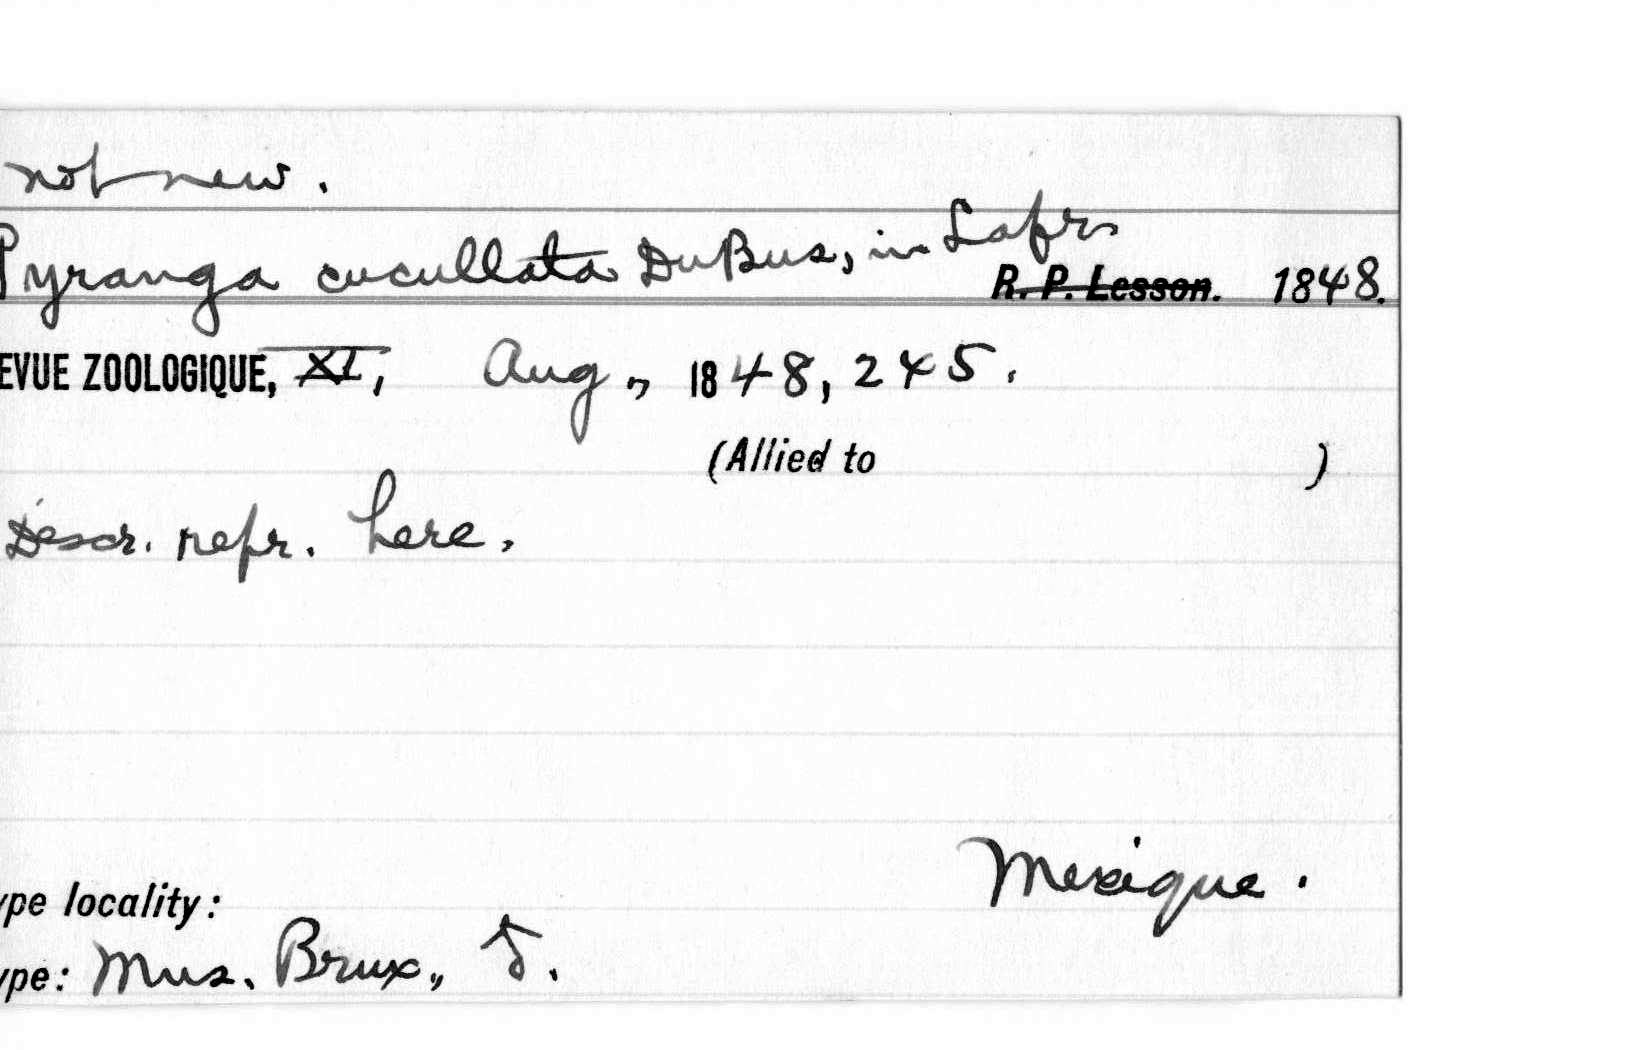 not new.
Pyranga cucullata DuBus, in Lafr.
R. P. Lesson. 1848.
EVUE ZOOLOGIQUE, XI, Aug., 1848, 245.
(Allied to )
Descr. repr. here.
Mexique.
ype locality:
ype: Mus. Brux., ♂.